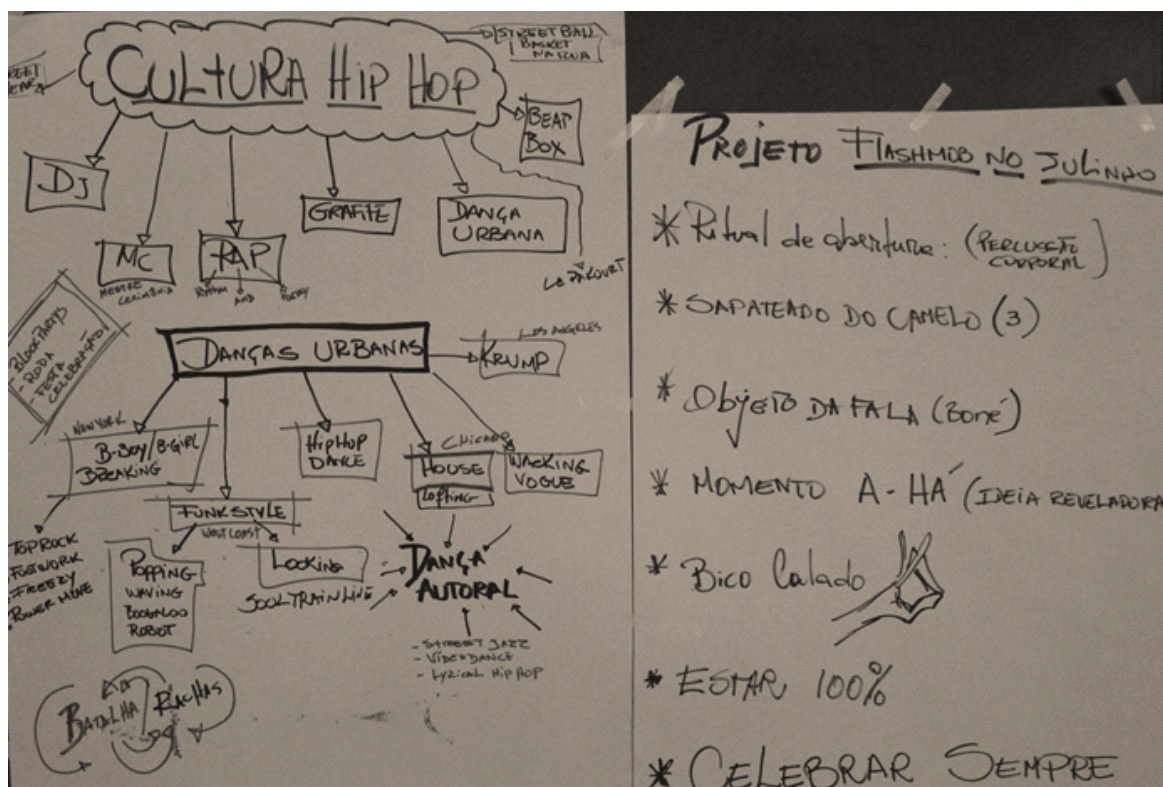 CULTURA HIP HOP
STREET BALL
BASKET
DE RUA
BEAT
BOX
DJ
MC
MESTRE
CERIMÔNIA
RAP
RYTHM
AND
POETRY
GRAFITE
DANÇA
URBANA
LE PARKOURT
BLOCK PARTYS
- RODA
- FESTA
CELEBRAÇÃO
DANÇAS URBANAS
LOS ANGELES
KRUMP
NEW YORK
B-BOY/B-GIRL
BREAKING
HIP HOP
DANCE
CHICAGO
HOUSE
LOFTING
WACKING
VOGUE
FUNK STYLE
WEST COAST
TOP ROCK
FOOTWORK
FREEZY
POWER MOVE
POPPING
WAVING
BOOGALOO
ROBOT
LOCKING
SOOLTRAIN LINE
DANÇA
AUTORAL
- STREET JAZZ
- VIDEODANCE
- LYZICAL HIP HOP
BATALHA/RACHAS
PROJETO FLASHMOB NO JULINHO
* Ritual de abertura: (PERCUSSÃO
CORPORAL)
* SAPATEADO DO CAMELO (3)
* Objeto DA FALA (BONÉ)
* MOMENTO A-HÁ (IDEIA REVELADORA
* Bico Calado
* ESTAR 100%
* CELEBRAR SEMPRE